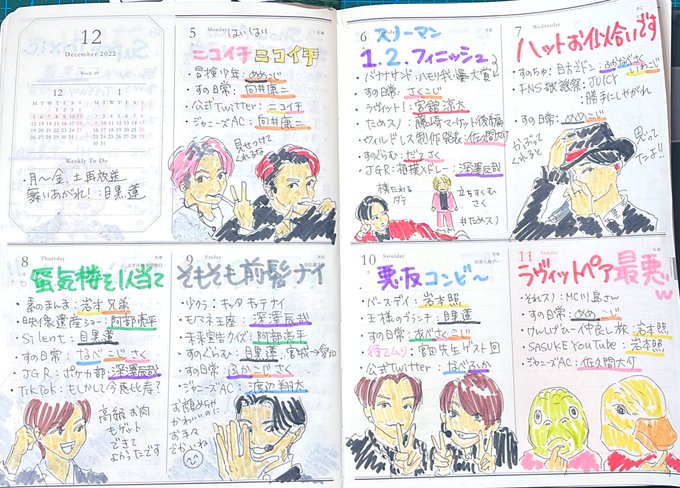 12
December 2022
Week 49
12
1
M T W T F S S
M T W T F S S
Weekly To Do
・月〜金、土再放送
舞いあがれ!:目黒蓮
5
Monday
はいはい
ニコイチ ニコイチ
・冒険少年:めめこじ
すの日常:向井康二
・公式Twitter:ニコイチ
・ジャニーズAC:向井康二
見せつけて
くれるな
6
Tuesday
スリーマン
1.2.フィニッシュ
・バナナサンド:ハモリ我慢大賞
・すの日常:さくこじ
・ラヴィット!:宮舘涼太
ためスノ:藤崎マーケット後編
・ワイルドレス制作発表:佐久間大介
・すのぐらむ:だてさく
・JGR:相撲ドレー:深澤辰哉
横たわる
ダテ
立ちすくむ
さく
#ためスノ
7
Wednesday
ハットお似合いです
FNS歌謡祭:JUICY
勝手にしやがれ
・すの日常:めめこじ
かぶって
くれると
思って
たよ!!
8
Thursday
蜃気楼を1人占て
・森のまんま:岩本兄弟
・映像遺産ショー:阿部亮平
・Silent:目黒蓮
・すの日常:なべこじさく
・JGR:ポケカ部:深澤辰哉
・TikTok:もしかして今馬比寿?
高級お肉
もゲット
できて
よかったです
9
Friday
そもそも前髪ナイ
・少クラ:キッタモテナイ
・モノマネ王座:深澤辰哉
・未来宝生クイズ:阿部亮平
・すのぐらむ:目黒蓮
・すの日常:ふかこじさく
・ジャニーズAC:渡辺翔太
お顔めちゃ
かわいいのに
お手々
でかいね
10
Saturday
悪友コンビ〜
・バースデイ:岩本照
・王様のブランチ:目黒蓮
・すの日常:あべさくこじ
ゲスト回
・公式Twitter:なべるか
11
Sunday
ラヴィットペア最悪w
・それスノ:MC川島さん
・すの日常:めめこじ
・けんしげムーイ仲良し旅:岩本照
・SASUKE YouTube:岩本照
・ジャニーズAC:佐久間大介